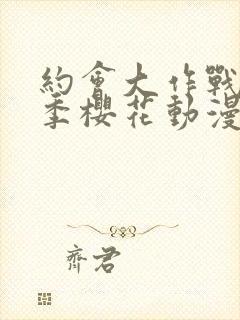 約會大作戰
季櫻花動漫
齊君